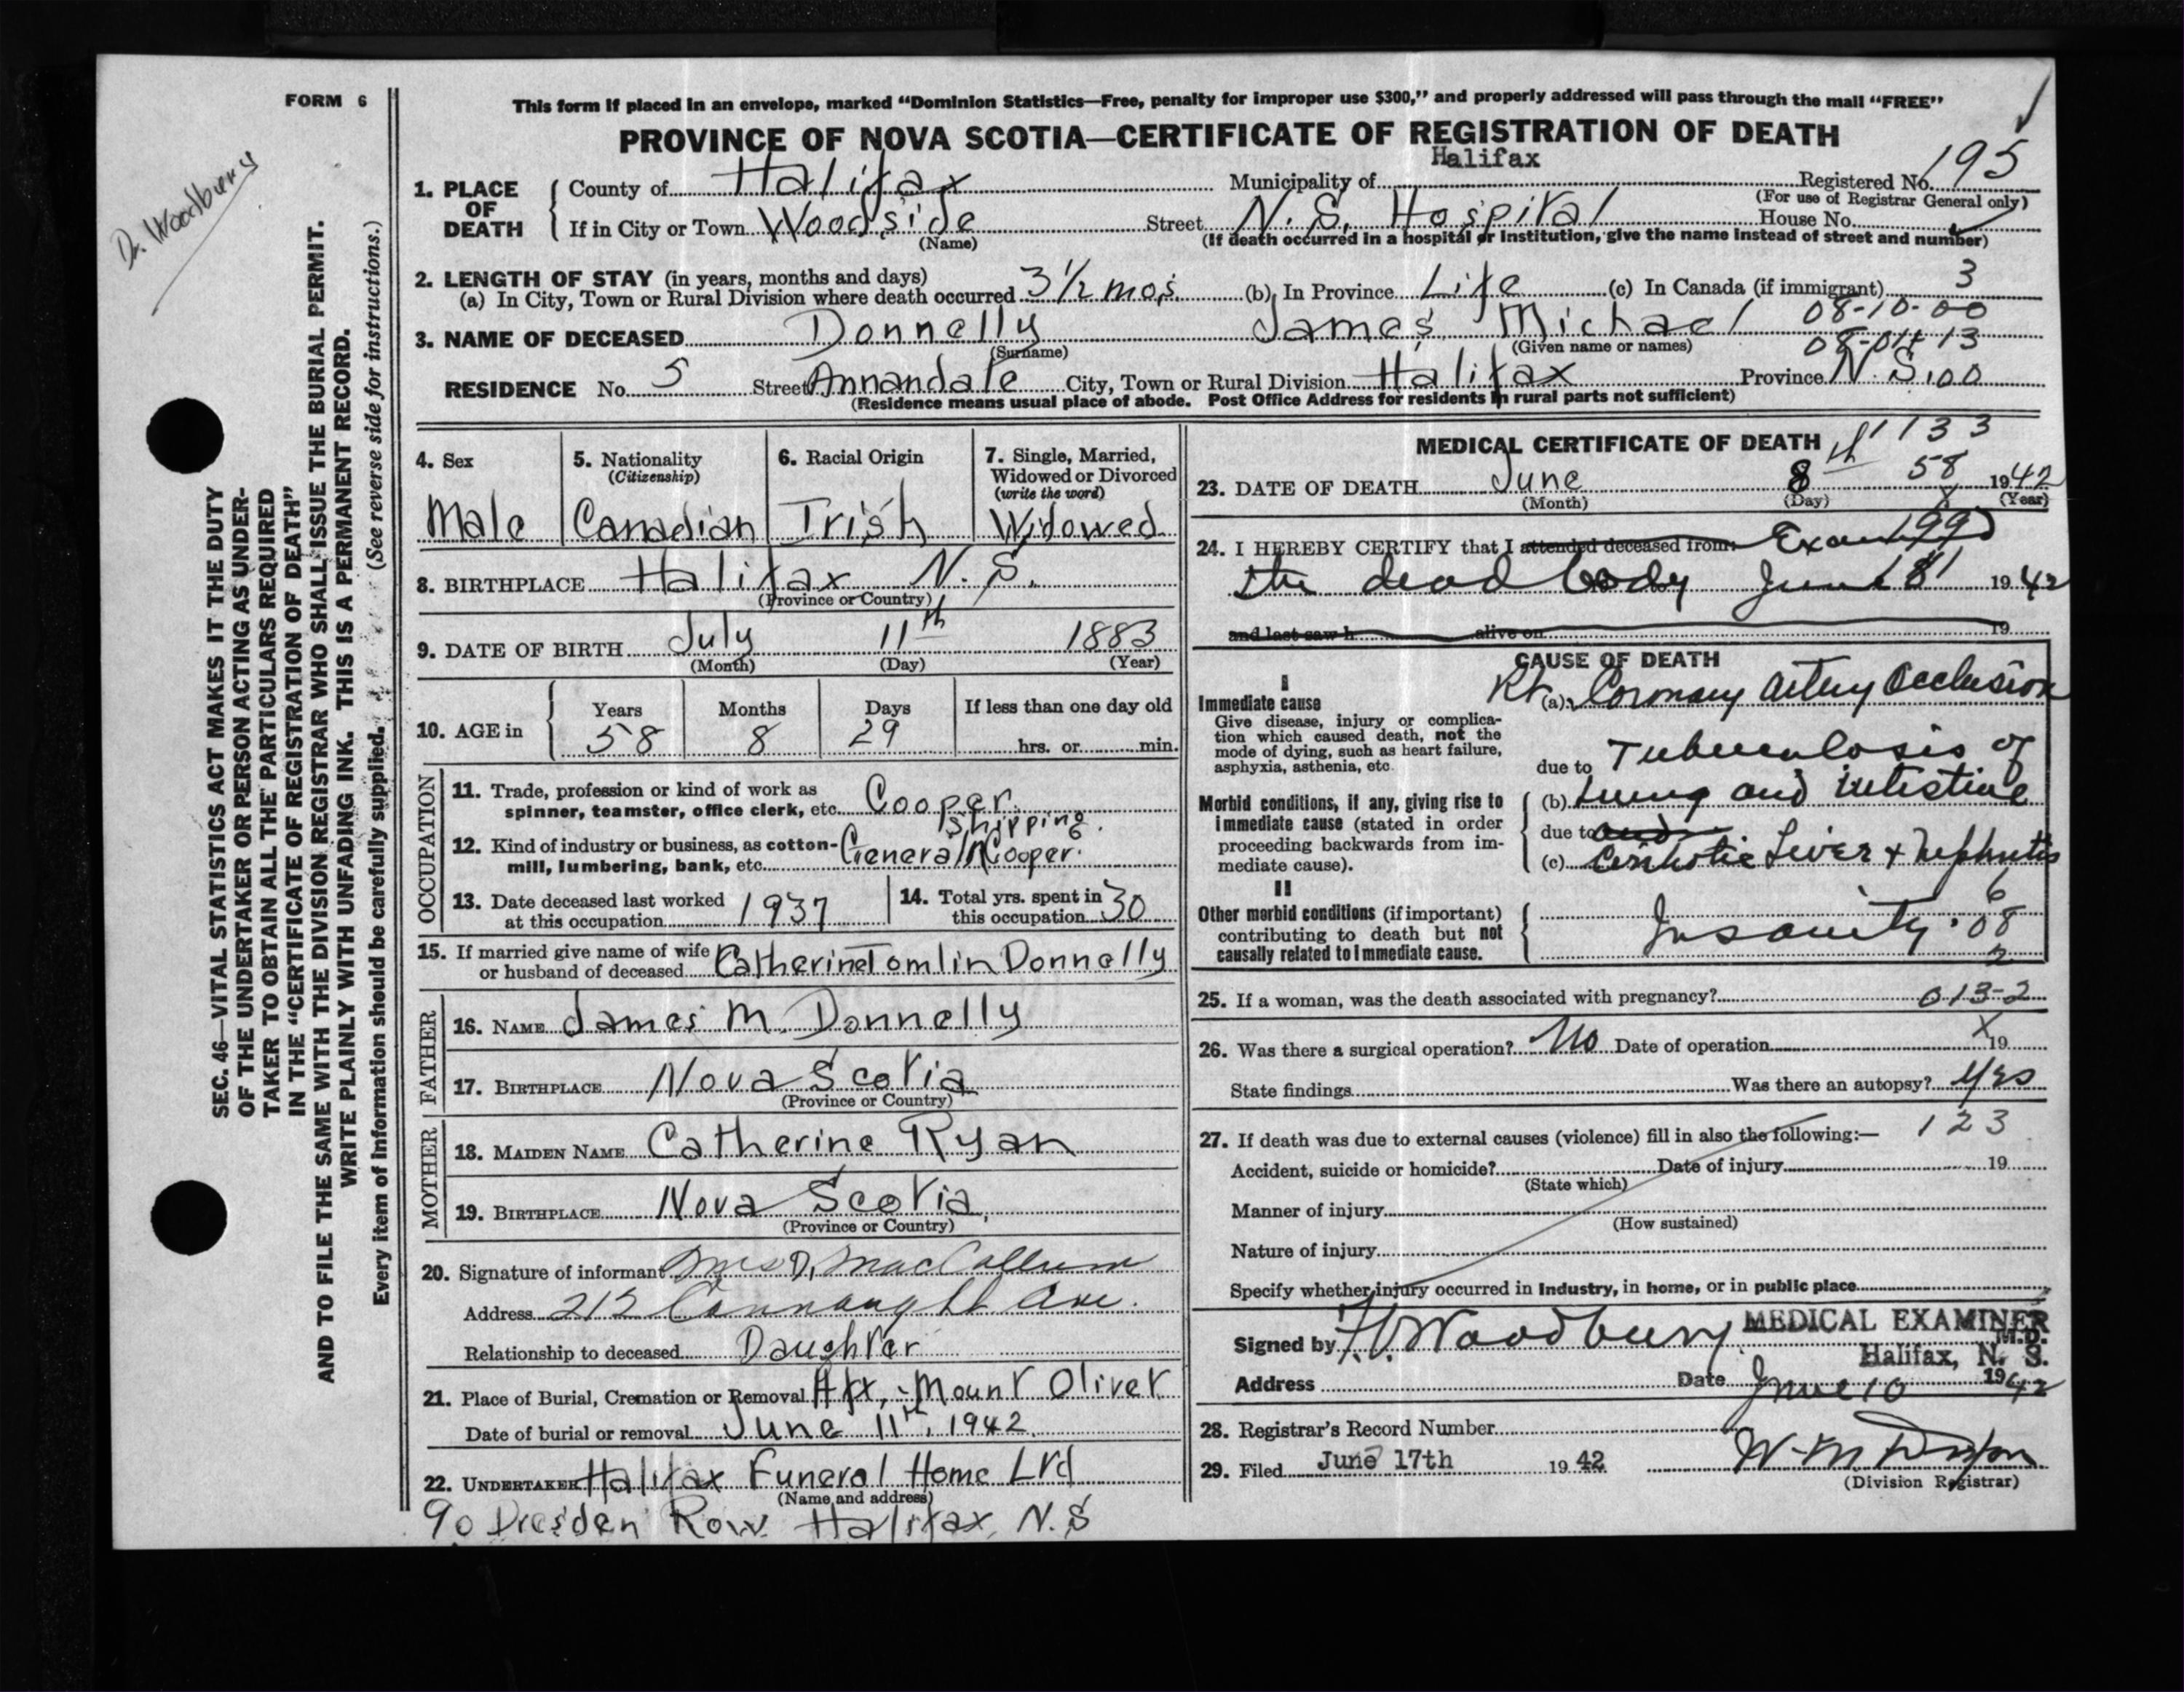 FORM 6
Dr. Woodbury
SEC. 46—VITAL STATISTICS ACT MAKES IT THE DUTY
OF THE UNDERTAKER OR PERSON ACTING AS UNDER-
TAKER TO OBTAIN ALL THE PARTICULARS REQUIRED
IN THE "CERTIFICATE OF REGISTRATION OF DEATH"
AND TO FILE THE SAME WITH THE DIVISION REGISTRAR WHO SHALL ISSUE THE BURIAL PERMIT.
WRITE PLAINLY WITH UNFADING INK. THIS IS A PERMANENT RECORD.
Every item of information should be carefully supplied. (See reverse side for instructions.)
This form if placed in an envelope, marked "Dominion Statistics—Free, penalty for improper use $300," and properly addressed will pass through the mail "FREE"
PROVINCE OF NOVA SCOTIA—CERTIFICATE OF REGISTRATION OF DEATH
1. PLACE OF DEATH County of Halifax Municipality of Halifax Registered No. 195
(For use of Registrar General only)
If in City or Town Woodside Street N. S. Hospital House No.
(Name) (If death occurred in a hospital or institution, give the name instead of street and number)
2. LENGTH OF STAY (in years, months and days)
(a) In City, Town or Rural Division where death occurred 3 1/2 mos. (b) In Province Life (c) In Canada (if immigrant) 3
08-10-00
3. NAME OF DECEASED Donnelly James Michael 08-04 13
(Surname) (Given name or names)
RESIDENCE No. 5 Street Annandale City, Town or Rural Division Halifax Province N.S. 00
(Residence means usual place of abode. Post Office Address for residents in rural parts not sufficient)
4. Sex 5. Nationality 6. Racial Origin 7. Single, Married,
(Citizenship) Widowed or Divorced
(write the word)
Male Canadian Irish Widowed
8. BIRTHPLACE Halifax N. S.
(Province or Country)
9. DATE OF BIRTH July 11th 1883
(Month) (Day) (Year)
10. AGE in Years Months Days If less than one day old
58 8 29 hrs. or min.
OCCUPATION
11. Trade, profession or kind of work as
spinner, teamster, office clerk, etc. Cooper
shipping
12. Kind of industry or business, as cotton-
mill, lumbering, bank, etc. General Cooper.
13. Date deceased last worked
at this occupation 1937
14. Total yrs. spent in
this occupation 30
15. If married give name of wife
or husband of deceased Catherine Tomlin Donnelly
FATHER
16. NAME James M. Donnelly
17. BIRTHPLACE Nova Scotia
(Province or Country)
MOTHER
18. MAIDEN NAME Catherine Ryan
19. BIRTHPLACE Nova Scotia
(Province or Country)
20. Signature of informant Mrs D. MacCallum
Address 212 Connaught Ave.
Relationship to deceased Daughter
21. Place of Burial, Cremation or Removal Hfx, - Mount Olivet
Date of burial or removal June 11th, 1942
22. UNDERTAKER Halifax Funeral Home Ltd
(Name and address)
90 Dresden Row Halifax, N.S
MEDICAL CERTIFICATE OF DEATH 133
23. DATE OF DEATH June 8th 58 1942
(Month) (Day) (Year)
24. I HEREBY CERTIFY that I attended deceased from: Examined 199
the dead body June 8 1942
and last saw h alive on 19
CAUSE OF DEATH
I
Immediate cause
Give disease, injury or complica-
tion which caused death, not the
mode of dying, such as heart failure,
asphyxia, asthenia, etc.
Rt. (a) Coronary Artery Occlusion
due to Tuberculosis of
Morbid conditions, if any, giving rise to
immediate cause (stated in order
proceeding backwards from im-
mediate cause).
(b) Lung and intestine
due to and
(c) Cirrhotic Liver + Nephritis
II
Other morbid conditions (if important)
contributing to death but not
causally related to immediate cause.
6
Insanity. 08
2
25. If a woman, was the death associated with pregnancy? 013-2
26. Was there a surgical operation? No Date of operation X 19
State findings Was there an autopsy? Yes
27. If death was due to external causes (violence) fill in also the following:— 123
Accident, suicide or homicide? Date of injury 19
(State which)
Manner of injury
(How sustained)
Nature of injury
Specify whether injury occurred in industry, in home, or in public place
Signed by F.V. Woodbury MEDICAL EXAMINER
M.D.
Halifax, N. S.
Address Date June 10 1942
28. Registrar's Record Number
29. Filed June 17th 1942
(Division Registrar)